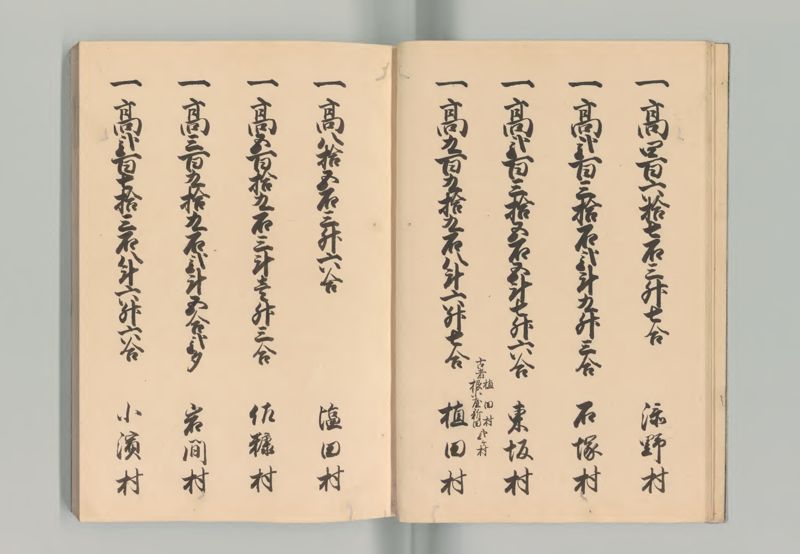 一 高四百六拾七石三升七合 添野村
一 高弐百三拾石弐斗九升三合 石塚村
一 高弐百三拾五石五斗七升六合 東坂村
一 高九百九拾九石八斗六升七合 植田村
植田村
根小屋
村
一 高八拾五石三升六合 塩田村
一 高五百拾九石三斗壱升三合 佐糠村
一 高三百九拾九石弐斗五合弐夕 岩間村
一 高弐百七拾三石八斗六升六合 小濱村